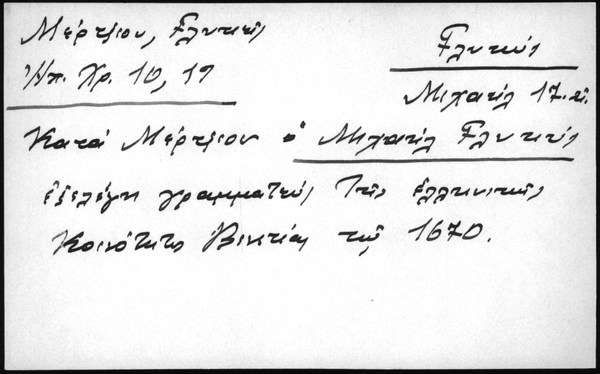 Μέρτζιου, Γλυκεῖς
Ἠπ. Χρ. 10, 19
Γλυκύς
Μιχαήλ 17. αἰ.
Κατά Μέρτζιον ὁ Μιχαήλ Γλυκύς
ἐξελέγη γραμματεύς τῆς ἑλληνικῆς
Κοινότητος Βενετίας τῷ 1670.